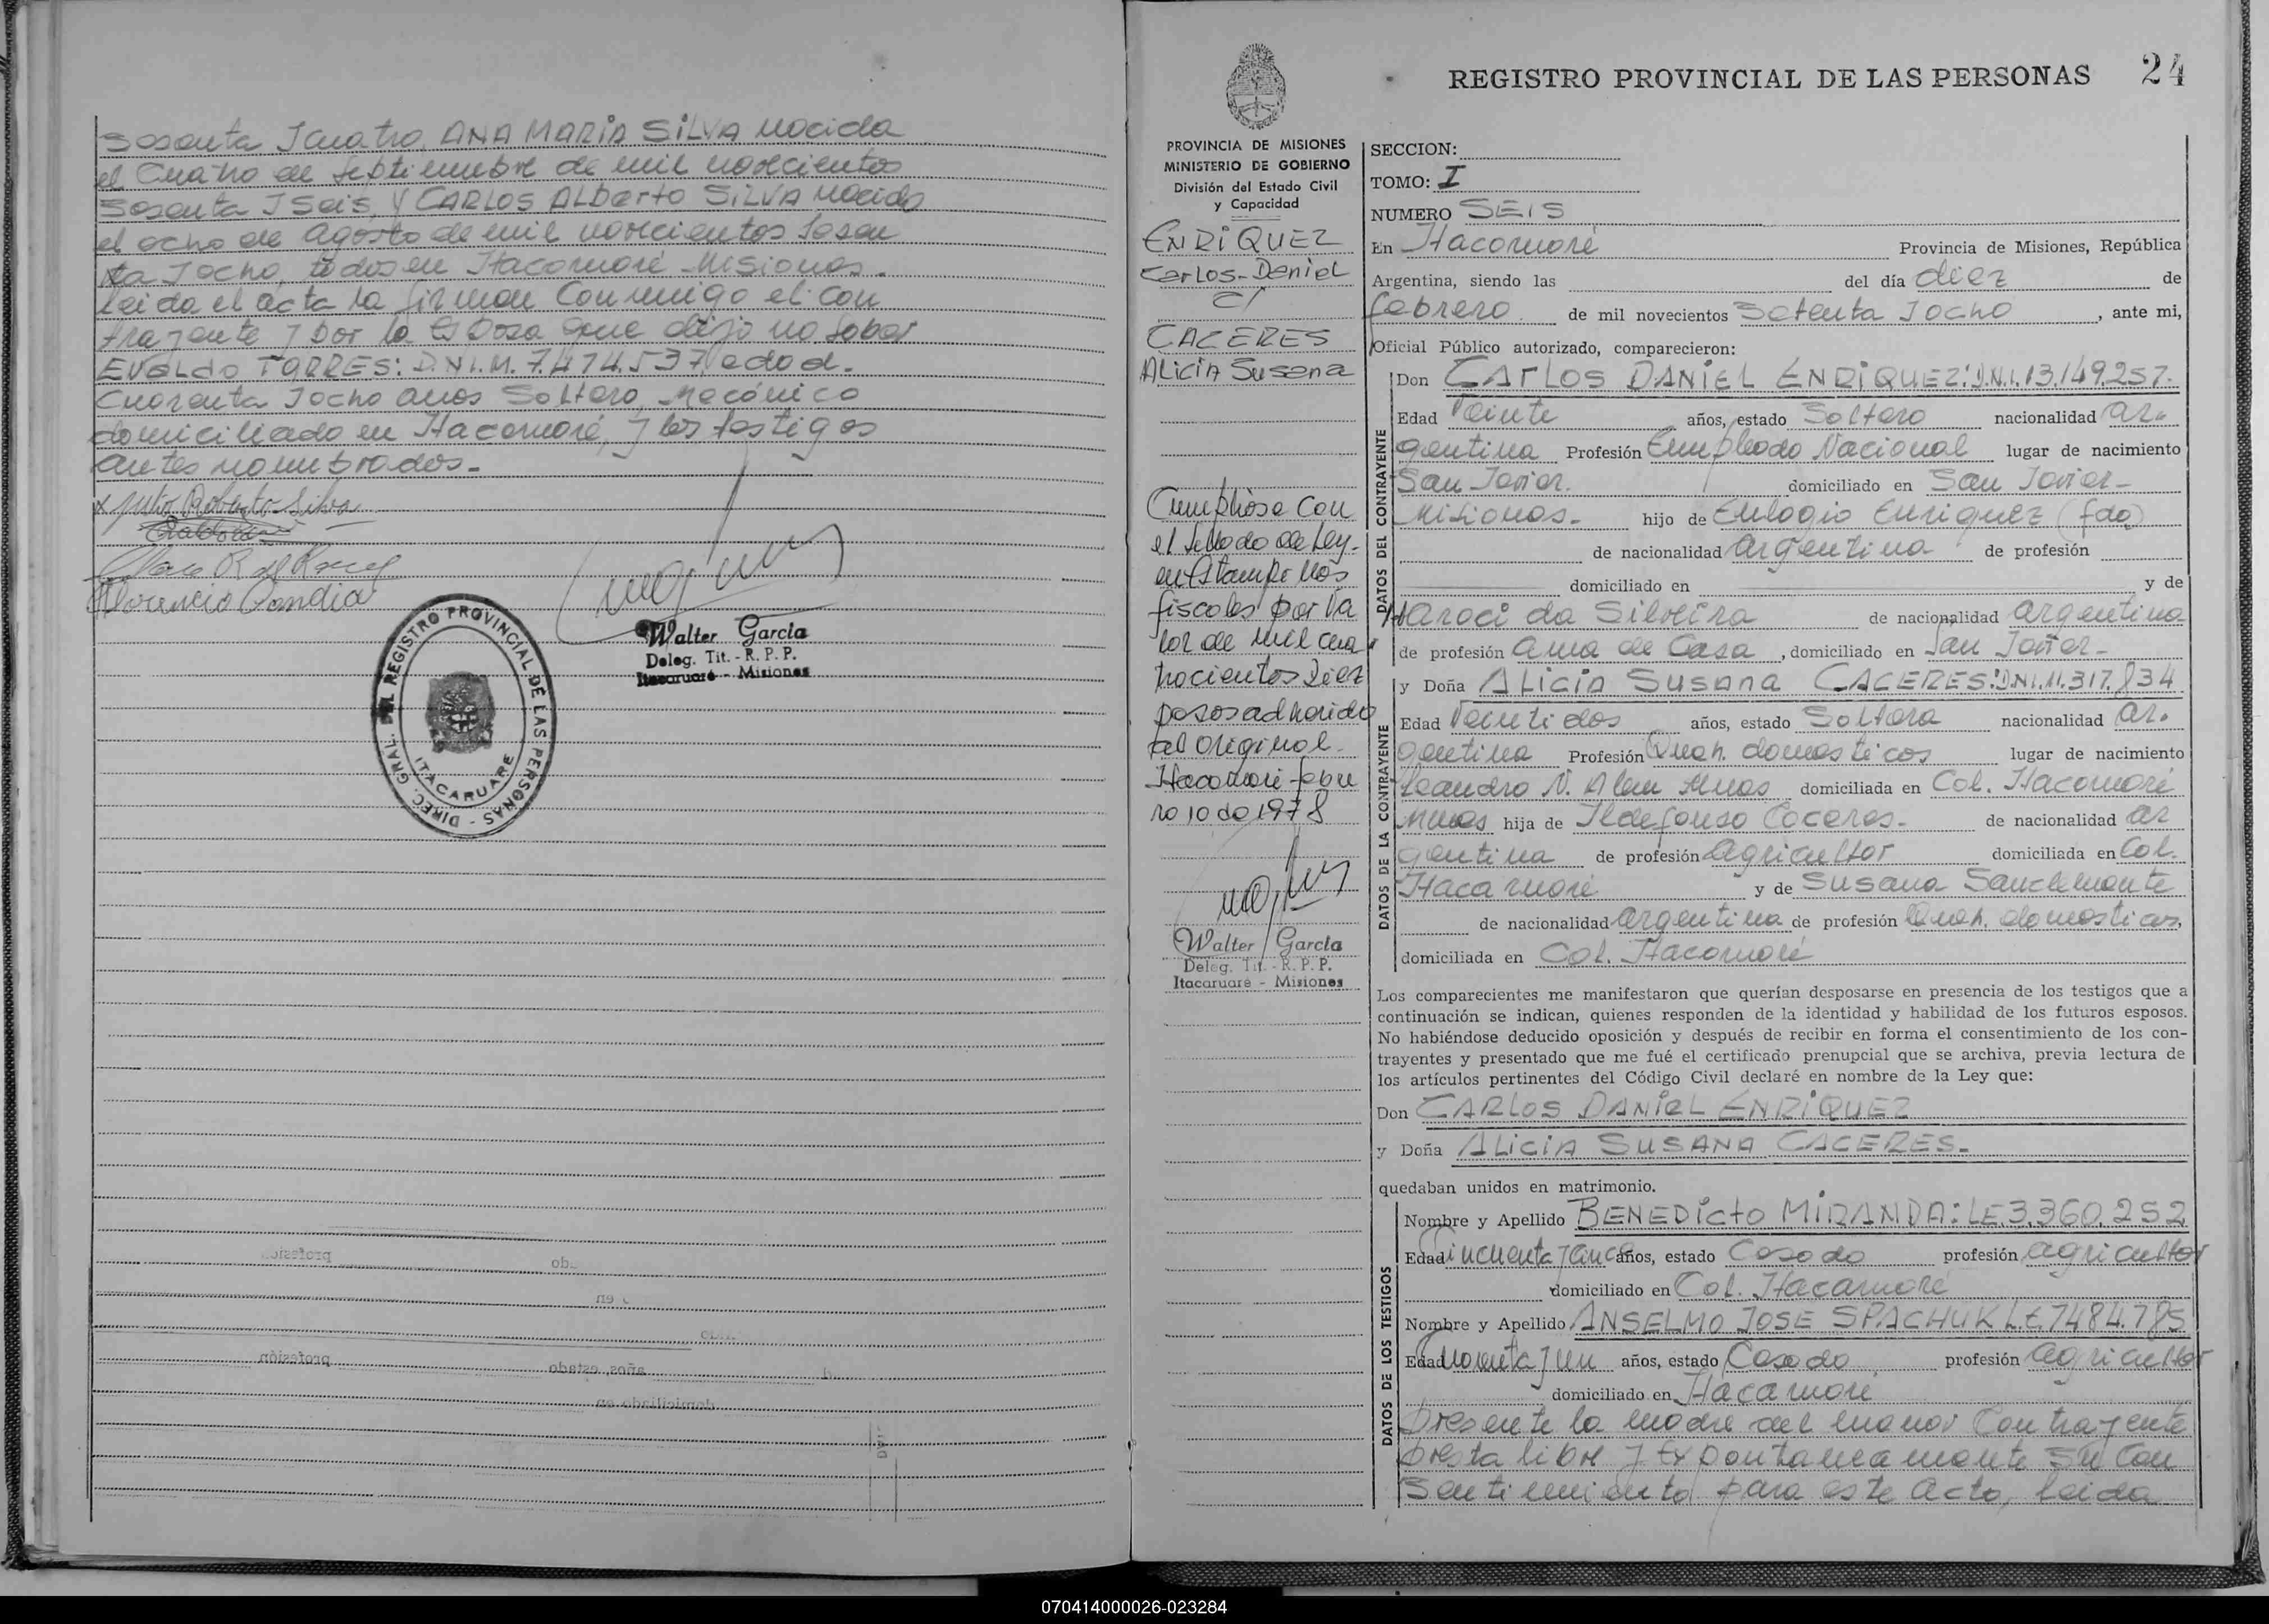 Sesenta y cuatro, ANA MARIA SILVA nacida
el Cuatro de Septiembre de mil novecientos
Sesenta y Seis, Y CARLOS ALBERTO SILVA nacido
el ocho de agosto de mil novecientos Sesen
ta y ocho, todos en Itacaruaré Misiones.
Leida el acta la firman Conmigo el Con
trayente y por la Esposa que dijo no saber
EVALDO TORRES: D.N.I.M. 7.474.537, edad.
Cuarenta y ocho años Soltero, Mecánico
domiciliado en Itacaruaré, y los testigos
antes nombrados.-
Roberto Silva
Florencio Candia
Walter Garcia
Deleg. Tit. - R. P. P.
Itacaruaré - Misiones
DIREC. GRAL. DEL REGISTRO PROVINCIAL DE LAS PERSONAS -
ITACARUARE
REGISTRO PROVINCIAL DE LAS PERSONAS 24
PROVINCIA DE MISIONES
MINISTERIO DE GOBIERNO
División del Estado Civil
y Capacidad
ENRIQUEZ
Carlos-Daniel
c/
CACERES
Alicia Susana
Cumpliose con
el Sellado de Ley.
en Estampillas
fiscales por va
lor de mil cua
trocientos Diez
pesos adherido
al Original.
Itacaruaré febre
ro 10 de 1978
Walter Garcia
Deleg. Tit. - R. P. P.
Itacaruaré - Misiones
SECCION:
TOMO: I
NUMERO SEIS
En Itacaruaré Provincia de Misiones, República
Argentina, siendo las del día diez de
febrero de mil novecientos Setenta y ocho, ante mi,
Oficial Público autorizado, comparecieron:
DATOS DEL CONTRAYENTE
Don CARLOS DANIEL ENRIQUEZ: D.N.I. 13.149.257.
Edad Veinte años, estado Soltero nacionalidad ar-
gentina Profesión Empleado Nacional lugar de nacimiento
San Javier. domiciliado en San Javier-
Misiones- hijo de Eulogio Enriquez (fdo)
de nacionalidad argentina de profesión
domiciliado en y de
Maroci da Silveira de nacionalidad argentina
de profesión ama de Casa, domiciliado en San Javier-
DATOS DE LA CONTRAYENTE
y Doña ALICIA SUSANA CACERES: D.N.I. 11.317.834
Edad Veintidos años, estado Soltera nacionalidad ar.
gentina Profesión Queh. domesticos lugar de nacimiento
Leandro N. Alem Mnes domiciliada en Col. Itacaruaré
Mnes hija de Ildefonso Caceres- de nacionalidad ar
gentina de profesión agricultor domiciliada en Col.
Itacaruaré y de Susana Sanclemente
de nacionalidad argentina de profesión Queh. domesticos,
domiciliada en Col. Itacaruaré
Los comparecientes me manifestaron que querían desposarse en presencia de los testigos que a
continuación se indican, quienes responden de la identidad y habilidad de los futuros esposos.
No habiéndose deducido oposición y después de recibir en forma el consentimiento de los con-
trayentes y presentado que me fué el certificado prenupcial que se archiva, previa lectura de
los artículos pertinentes del Código Civil declaré en nombre de la Ley que:
Don CARLOS DANIEL ENRIQUEZ
y Doña ALICIA SUSANA CACERES-
quedaban unidos en matrimonio.
DATOS DE LOS TESTIGOS
Nombre y Apellido BENEDICTO MIRANDA: L.E. 3.360.252
Edad cincuenta y cinco años, estado Casado profesión agricultor
domiciliado en Col. Itacaruaré
Nombre y Apellido ANSELMO JOSE SPACHUK L.E. 7484.785
Edad y un años, estado Casado profesión agricultor
domiciliado en Itacaruaré
Presente la madre del menor Contrayente
presta libre y Expontaneamente Su Con
Sentimiento para este acto, leida
070414000026-023284